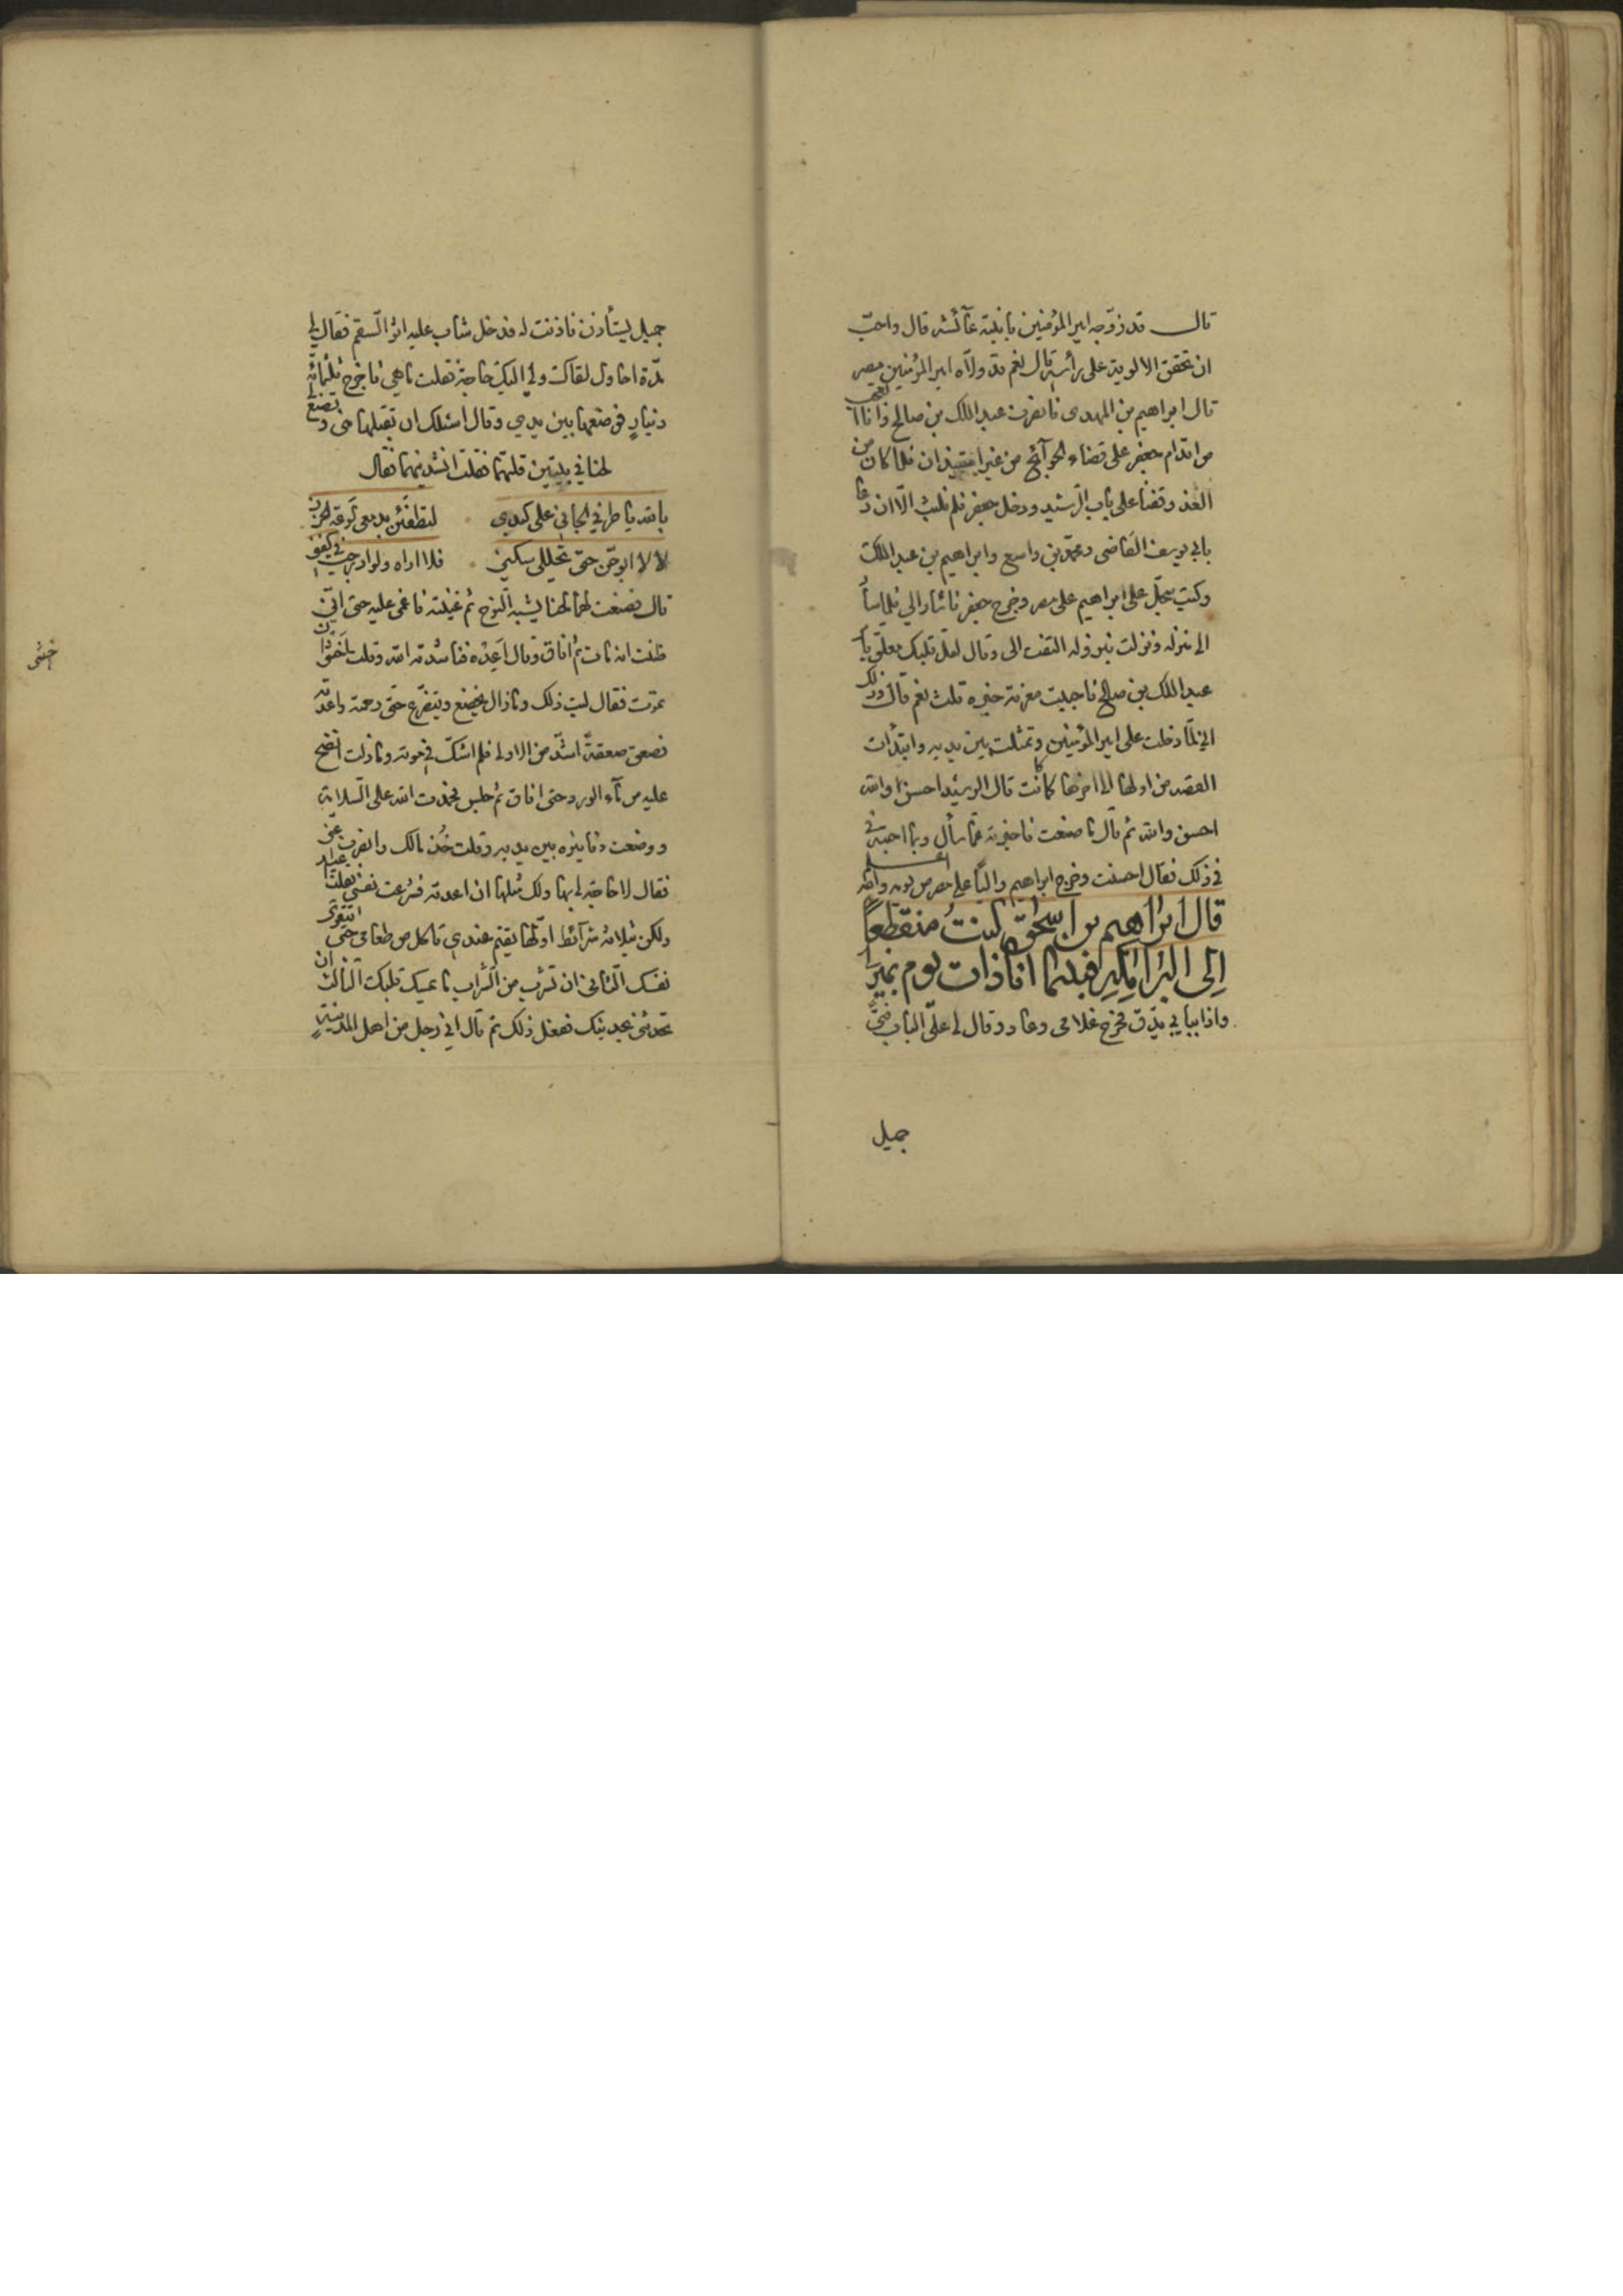 قال قد زوّجه امير المؤمنين بابنته عآئشه قال واحبّ
ان تخفق الالوية على رأسه قال نعم قد ولّاه امير المؤمنين مصر
قال ابراهيم بن المهدى فانصرف عبد الملك بن صالح وانا اتعجب
من اقدام جعفر على قضاء الحوآئج من غير استيذان فلما كان من
الغد وقفنا على باب الرّشيد ودخل جعفر فلم نلبث الّا ان دعا
بابي يوسف القاضى ومحمّد بن واسع وابراهيم بن عبد الملك
وكتب سجلّ على ابراهيم على مصر وخرج جعفر فاشار الي فلما سأ
الى منزله ونزلت بنزوله التفت الى وقال لعلّ قلبك معلّق بأ
عبد الملك بن صالح فاحببت معرفة خبره قلت نعم قال وذلك
اني لمّا دخلت على امير المؤمنين وتمثلت بين يديه وابتدأت
القصه من اولها الى اخرها كما كانت قال الرشيد احسن والله
احسن والله ثم قال ما صنعت فاخبرته عمّا سأل وبما اجبته في
في ذلك فقال احسنت وخرج ابراهيم والياً على مصر من يومه والله اعلم
قال ابراهيم بن اسحق كنتُ منقطعاً
الى البرامكه فبينما انا ذات يوم بمنزلى
واذا ببابي يدّق فخرج غلامى وعاد وقال لى على الباب فتىً
جميل
جميل يستأذن فاذنت له فدخل شاب عليه اثر السّقم فقال لى
مدّة احاول لقاك ولي اليك حاجة فقلت ماهي فاخرج ثلثمائة
دنيارٍ فوضعها بين يدي وقال اسئلك ان تقبلها منى وتصنع
لحنا في بيتين قلتهما فقلت انشدنيهما فقال
بالله يا طرفي الجاني على كبدي لتطفئن بدمعى لوعة الحزن
لا لا ابوحن حتى تحللى سكنى فلا اراه ولو ادرجت في كفنى
قال فصنعت لهما لحنا يشبه النّوح ثم غنيته فاغمى عليه حتى انّى
ظننت انه مات ثم افاق وقال اعِدْه فناشدته الله وقلت اخشى ان
تموت فقال ليت ذلك ومازال يخضع ويتضرّع حتّى رحمته واعدته
فصعق صعقةً اشدّ من الاولى فلم اشكّ في موته ومازلت انضح
عليه من مآء الورد حتى افاق ثم جلس فحمدت الله على السّلامة
ووضعت دنانيره بين يديه وقلت خُذ مالك وانصرف عنّى
فقال لاحاجة لي بها ولك مثلها ان اعدته فشرعت نفسى فقلت اعيد
ولكن بثلاثة شرآئط اولّها تقيم عندى تاكل من طعامى حتى تتقوّى
نفسك الثّانى ان تشرب من الشّراب ما يمسك قلبك الثالث ان
تحدثنى بحديثك ففعل ذلك ثم قال اني رجل من اهل المدينة
اخشى